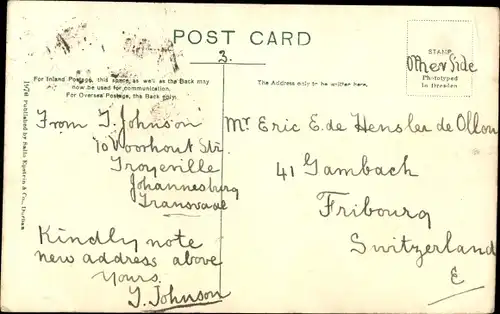 POST CARD
3.
STAMP
Other Side
Phototyped
in Dresden
For Inland Postage, this space, as well as the Back may
now be used for communication.
For Oversea Postage, the Back only.
The Address only to be written here.
Published by Sallo Epstein & Co., Durban
From T. Johnson
70 Voorhout Str.
Troyeville
Johannesburg
Transvaal
Kindly note
new address above
yours.
T. Johnson
Mr Eric E. de Hensler de Ollon
41 Gambach
Fribourg
Switzerland
E